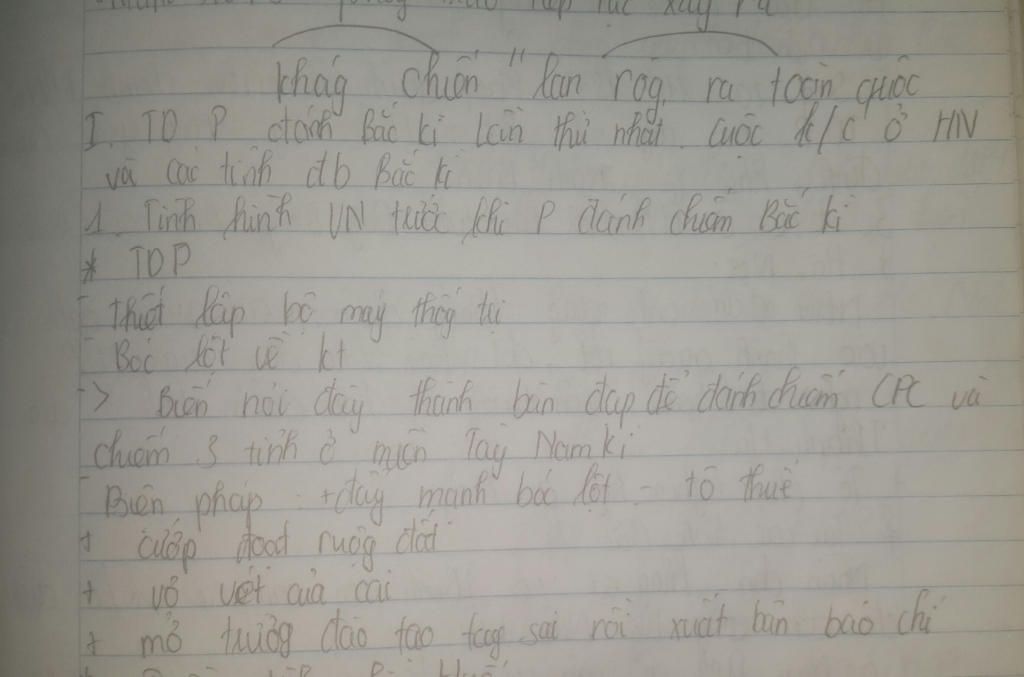 khág chiến " lan rộg ra toàn quốc
I. TD P đánh Bắc kì lần thứ nhất. Cuộc k/c ở HN
và các tỉnh đb Bắc kì
1. Tình hình VN trước khi P đánh chiếm Bắc kì
* TDP
- Thiết lập bộ máy thốg trị
- Bóc lột về kt
-> Biến nơi đây thành bàn đạp để đánh chiếm CPC và
chiếm 3 tỉnh ở miền Tây Nam kì
- Biện pháp : + đẩy mạnh bóc lột - tô thuế
+ cướp đoạt ruộg đất
+ vơ vét của cải
+ mở trườg đào tạo tay sai rồi xuất bản báo chí